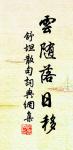 雲随落日移
舒坦散句詞典網集